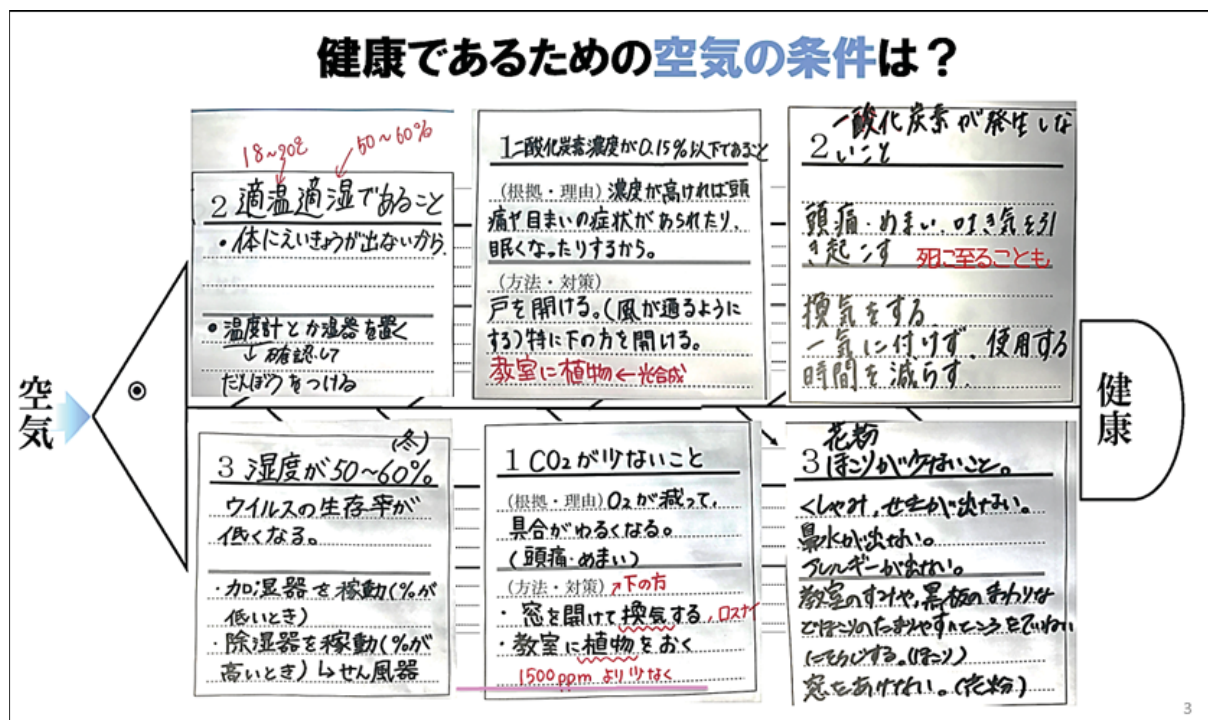 健康であるための空気の条件は？
空気
18~20℃
50~60%
2 適温適湿であること
・体にえいきょうが出ないから
・温度計とか湿器を置く
↓確認して
だんぼうをつける
1 二酸化炭素濃度が0.15%以下であること
(根拠・理由) 濃度が高ければ頭
痛や目まいの症状があられたり、
眠くなったりするから。
(方法・対策)
戸を開ける。(風が通るように
する)特に下の方を開ける。
教室に植物←光合成
2 一酸化炭素が発生しな
いこと
頭痛・めまい、吐き気を引
き起こす 死に至ることも
換気をする
一気に付けず、使用する
時間を減らす。
(冬)
3 湿度が50~60%。
ウイルスの生存率が
低くなる。
・加湿器を稼動(%が
低いとき)
・除湿器を稼動(%が
高いとき)↳せん風器
1 CO2が少ないこと
(根拠・理由) O2が減って、
具合がわるくなる。
(頭痛・めまい)
(方法・対策) ↗下の方
・窓を開けて換気する、ロスナイ
・教室に植物をおく
1500ppmより少なく
花粉
3 ほこりが少ないこと。
くしゃみ、せきが出ない。
鼻水が出ない。
アレルギーが出ない。
教室のすみや、黒板のまわりな
どほこりのたまりやすいところをていねい
にそうじする。(ほこり)
窓をあけない。(花粉)
健康
3